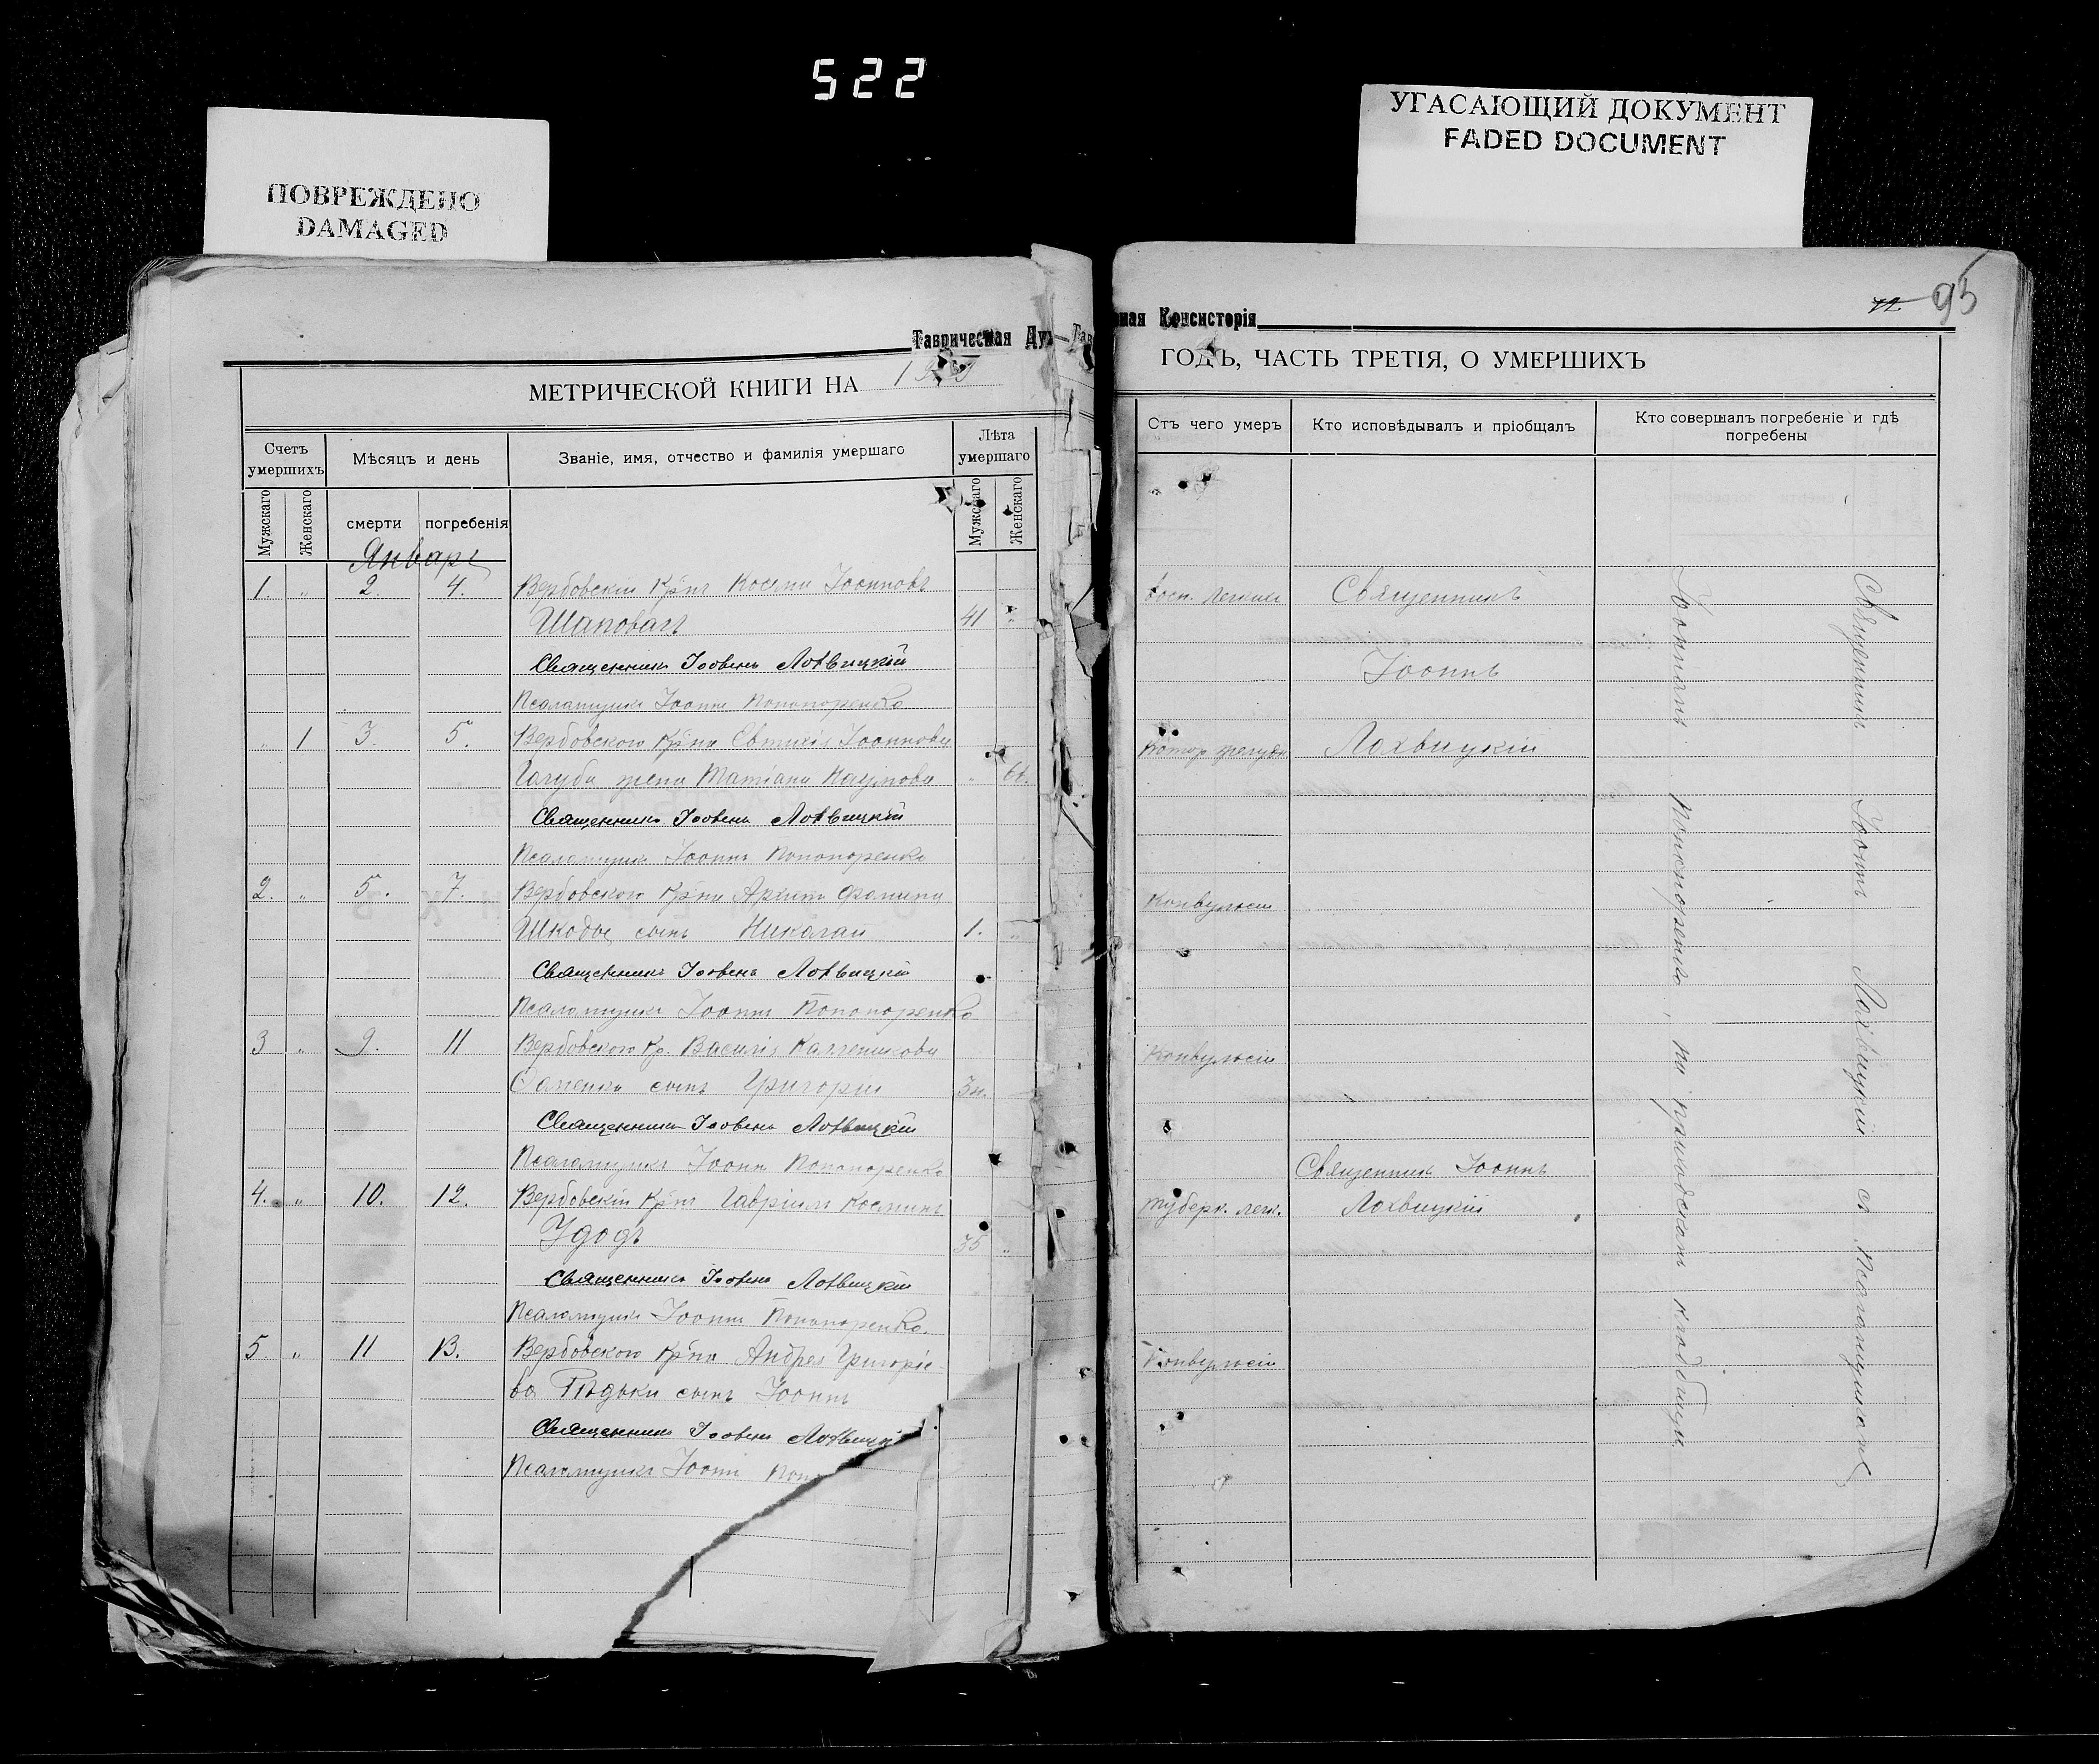 522
ПОВРЕЖДЕНО
DAMAGED
УГАСАЮЩИЙ ДОКУМЕНТ
FADED DOCUMENT
Таврическая Ду
МЕТРИЧЕСКОЙ КНИГИ НА
Счетъ умершихъ
Мѣсяцъ и день
Званіе, имя, отчество и фамилія умершаго
Лѣта умершаго
Мужскаго
Женскаго
смерти
погребенія
Мужскаго
Женскаго
Январь
1. " 2. 4. Вербовскій Кр̃нъ Косма Іоанновъ
Шаповалъ 41 "
Священникъ Іоаннъ Лохвицкій
Псаломщикъ Іоаннъ
" 1 3. 5. Вербовского Кр̃на Евтихія Іоаннова
Голуба жена Татіана Наумова "
Священникъ Іоаннъ Лохвицкій
Псаломщикъ Іоаннъ
2. " 5. 7. Вербовского Кр̃на Фомина
Шкоды сынъ Николай 1. "
Священникъ Іоаннъ Лохвицкій
Псаломщикъ Іоаннъ
3 " 9. 11 Вербовского Кр. Василія Каллиникова
сынъ Григорій
Священникъ Іоаннъ Лохвицкій
Псаломщикъ Іоаннъ
4. " 10. 12. Вербовскій Кр̃нъ Гавріилъ Косминъ
Удодъ 35 "
Священникъ Іоаннъ Лохвицкій
Псаломщикъ Іоаннъ
5. " 11 13. Вербовского Кр̃на Андрея Григоріе-
ва Рѣдьки сынъ Іоаннъ
Священникъ Іоаннъ Лохвицкі
Псаломщикъ Іоаннъ
ная Консисторія
95
ГОДЪ, ЧАСТЬ ТРЕТІЯ, О УМЕРШИХЪ
Отъ чего умеръ
Кто исповѣдывалъ и пріобщалъ
Кто совершалъ погребеніе и гдѣ погребены
Восп. легкихъ Священникъ
Іоаннъ
Лохвицкій
Конвульсіи
Конвульсіи
Священникъ Іоаннъ
Туберк. легк. Лохвицкій
Конвульсіи
Священникъ Іоаннъ Лохвицкій съ Псаломщикомъ
Іоанномъ на приходскомъ кладбищи